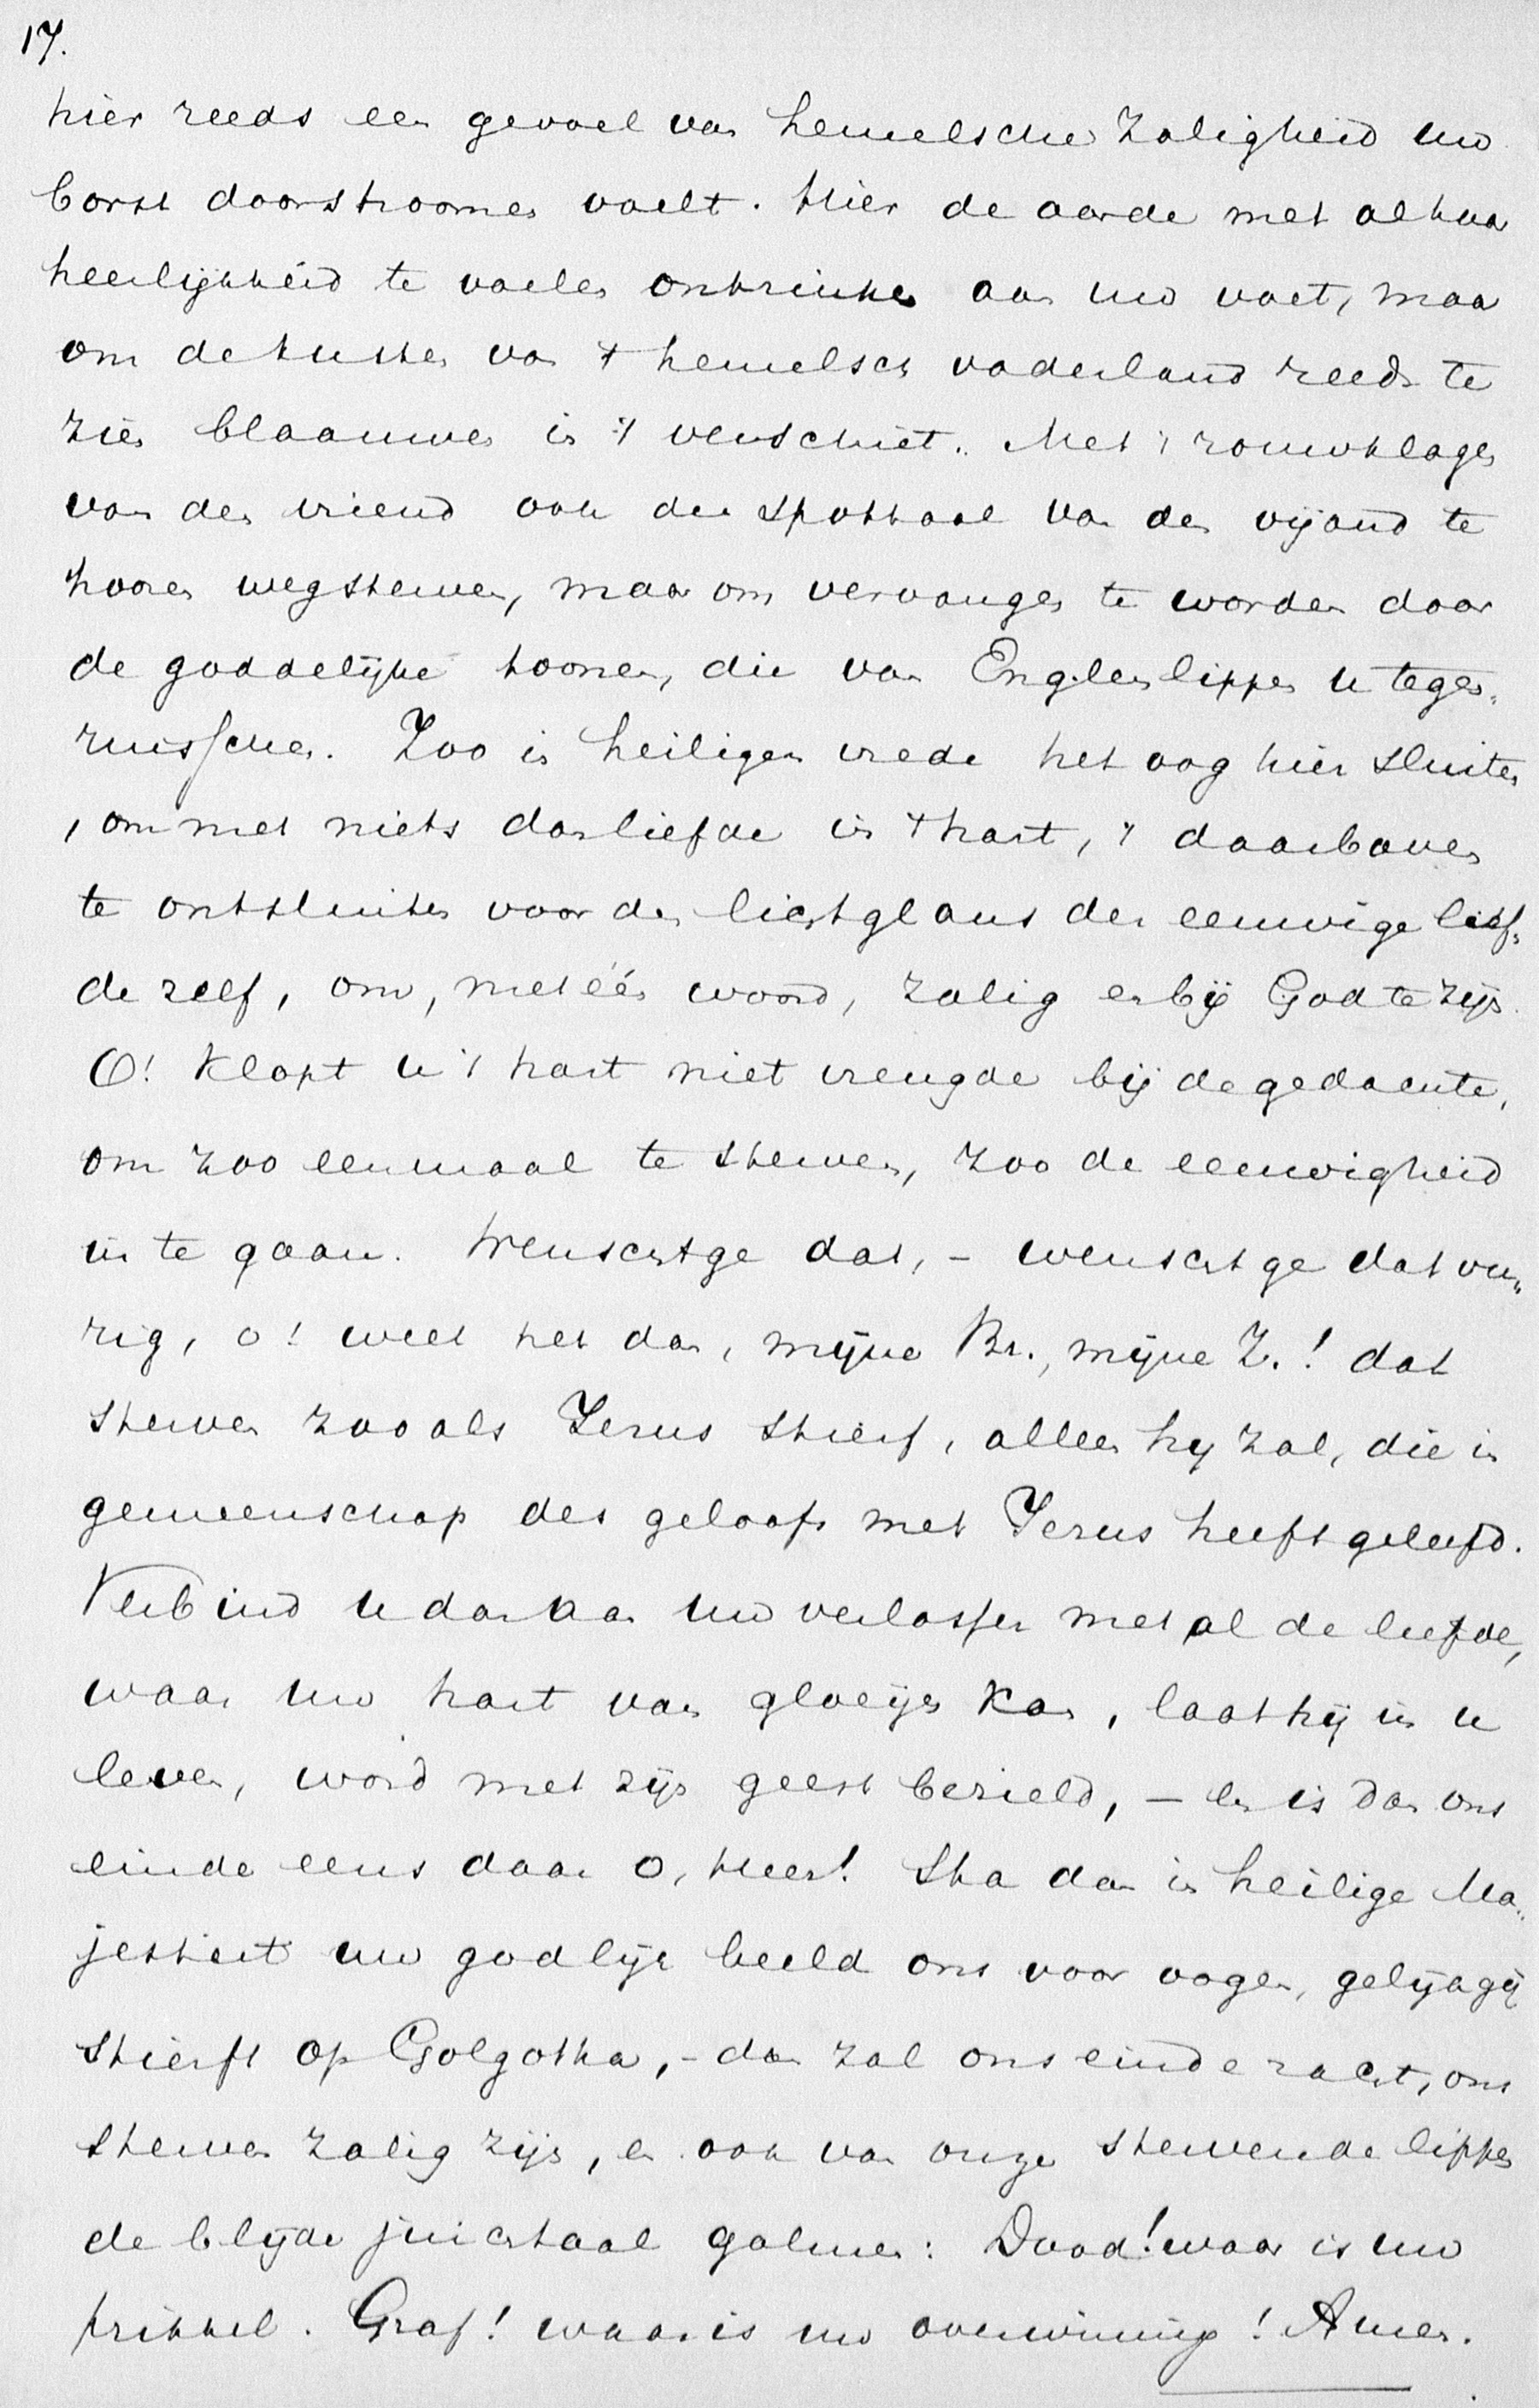 17.
hier reeds een gevoel van hemelsche zaligheid uw
borst doorstroomen voelt. Hier de aarde met al haar
heerlijkheid te voelen ontzinken aan uw voet, maar
om de kusten van 't hemelsch vaderland reeds te
zien blaauwen in 't verschiet. Met 't rouwklagen
van den vriend ook de spottaal van den vijand te
hooren wegsterven, maar om vervangen te worden door
de goddelijke toonen, die van Englenlippen u tegen-
ruisschen. Zoo in heiligen vrede het oog hier sluiten
, om met niets dan liefde in 't hart, 't daarboven
te ontsluiten voor den lichtglans der eeuwige lief-
de zelf, om, met één woord, zalig en bij God te zijn.
O! klopt u 't hart niet vreugde bij de gedachte,
om zoo eenmaal te sterven, zoo de eeuwigheid
in te gaan. Wenscht ge dat, - wenscht ge dat vu-
rig, o! weet het dan, mijne Br., mijne Z.! dat
sterven zooals Jezus stierf, alleen hij zal, die in
gemeenschap des geloofs met Jezus heeft geleefd.
Verbind u dan aan uw verlosser met al de liefde,
waar uw hart van gloeijen kan, laat hij in u
leven, word met zijn geest bezield, - en is dan ons
einde eens daar o, Heer! Sta dan in heilige Ma-
jesteit uw godlijk beeld ons voor oogen, gelijk gij
stierft op Golgotha, - dan zal ons einde zacht, ons
sterven zalig zijn, en ook van onze stervende lippen
de blijde juichtaal galmen: Dood! waar is uw
prikkel. Graf! waar is uw overwinning! Amen.